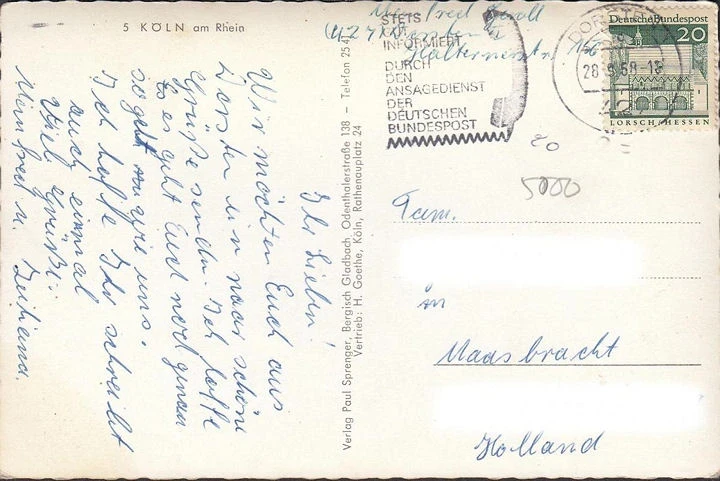 5 KÖLN am Rhein
Ihr Lieben!
Wir möchten Euch aus
Dorsten ein paar schöne
Grüße senden. Ich hoffe
es geht Euch noch genau
so gut wie uns.
Ich hoffe Ihr schreibt
auch einmal
Viele Grüße
Manfred u.
Verlag Paul Sprenger, Bergisch Gladbach Odenthalerstraße 138 — Telefon 2541
Vertrieb: H. Goethe, Köln, Rathenauplatz 24
Manfred
427 Dorsten
Halternerstr. 160
STETS
GUT
INFORMIERT
DURCH
DEN
ANSAGEDIENST
DER
DEUTSCHEN
BUNDESPOST
DORSTEN
28.9.68-18
Deutsche Bundespost
20
LORSCH/HESSEN
20
5000
Fam.
in
Maasbracht
Holland